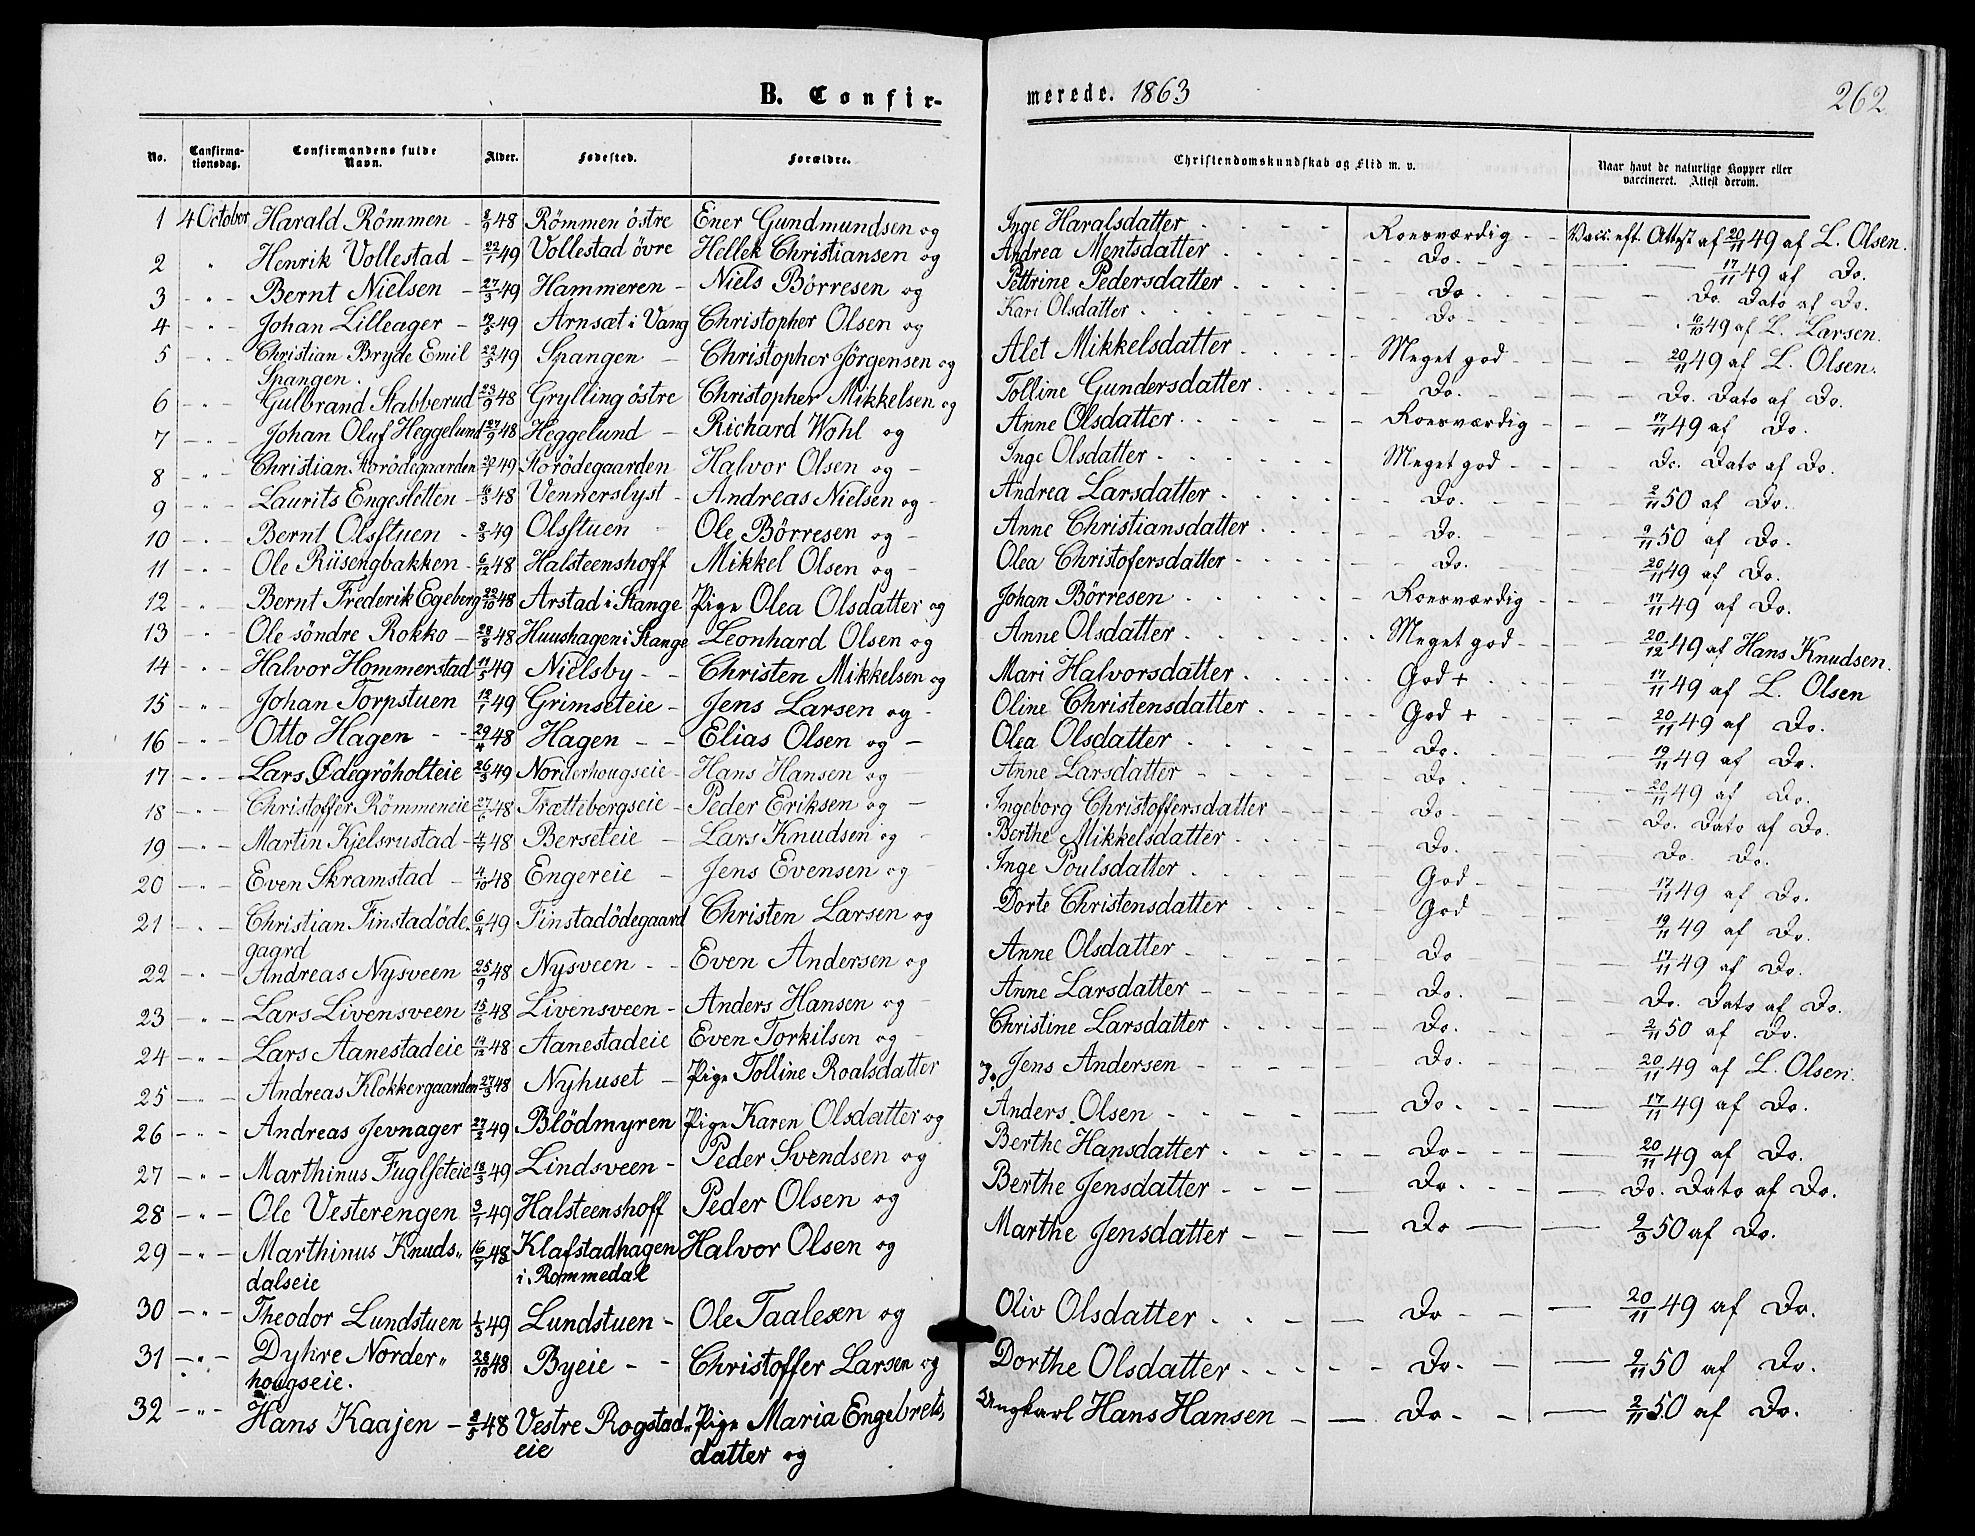 B. Confir-
merede. 1863
262
No. Confirma-tionsdag. Confirmandens fulde Navn. Alder. Fødested. Forældre. Christendomskundskab og Flid m. v. Naar havt de naturlige Kopper eller vaccineret. Attest derom.
1 4 October Harald Römmen - 48 Römmen östre Ener Gundmundsen og Inge Haralsdatter Roesværdig - Vacc. eft. Attest af 20/11 49 af L. Olsen.
2 " Henrik Vollestad - 22/1 49 Vollestad övre Hellek Christiansen og Andrea Mentsdatter Do. 17/11 49 af Do.
3 - " - Bernt Nielsen - 27/3 49 Hammeren - Niels Börresen og Pettrine Pedersdatter Do. Do. Dato af Do.
4 - " - Johan Lilleager - 49 Arnsæt i Vang Christopher Olsen og Kari Olsdatter Do - 49 af L. Larsen.
5 " - Christian Bryde Emil 49 Spangen - Christopher Jörgensen og Alet Mikkelsdatter Meget god - 20/11 49 af L. Olsen.
Spangen.
6 - " - Gulbrand Stabberud 23/9 48 Grylling östre Christopher Mikkelsen og Tolline Gundersdatter Do. Do. Dato af Do.
7 - " - Johan Oluf Heggelund 27/9 48 Heggelund - Richard Wohl og Anne Olsdatter Roesværdig - 17/11 49 af Do.
8 " Christian Storödegaarden 49 Storödegaarden Halvor Olsen og - Inge Olsdatter Meget god - Do. Dato af Do.
9 - " - Laurits Engesletten - 48 Vennerslyst - Andreas Nielsen og - Andrea Larsdatter Do. 2/11 50 af Do.
10 - " - Bernt Olsstuen - 49 Olsstuen - Ole Börresen og - Anne Christiansdatter Do. 2/11 50 af Do.
11 - " - Ole Riisengbakken - 6/12 48 Halsteenshoff Mikkel Olsen og - Olea Christofersdatter Do. 20/11 49 af Do.
12 - " Bernt Frederik Egeberg 22/10 48 Arstad i Stange Pige Olea Olsdatter og Johan Börresen Roesværdig - 17/11 49 af Do.
13 " Ole söndre Rokko - 48 Huushagen i Stange Leonhard Olsen og Anne Olsdatter Meget god - 20/12 49 af Hans Knudsen.
14 - " Halvor Hommerstad 49 Nielsby - Christen Mikkelsen og Mari Halvorsdatter God + 17/11 49 af L. Olsen
15 - " Johan Torpstuen 49 Grimseteie - Jens Larsen og - Oline Christensdatter God + 20/11 49 af Do.
16 - " - Otto Hagen - 48 Hagen - - Elias Olsen og - Olea Olsdatter Do. 19/11 49 af Do.
17 - " - Lars Ödegröholteie 26/3 49 Norderhougseie - Hans Hansen og - Anne Larsdatter Do - 20/11 49 af Do.
18 - " - Christoffer Römmeneie 27/6 48 Trættebergseie - Peder Eriksen og - Ingeborg Christoffersdatter Do - Do. Dato af Do.
19 - " - Martin Kjelsrustad - 48 Berseteie - Lars Knudsen og - Berthe Mikkelsdatter Do. Do. Do.
20 - " - Even Skramstad - 4/10 48 Engereie - Jens Evensen og - Inge Poulsdatter God - 17/11 49 af Do.
21 - " - Christian Finstadöde- 49 Finstadödegaard Christen Larsen og Dorte Christensdatter God 19/11 49 af Do.
gaard
22 - " - Andreas Nysveen 25/9 48 Nysveen - - Even Andersen og Anne Olsdatter Do 17/11 49 af Do.
23 - " - Lars Livensveen 15/6 48 Livensveen - Anders Hansen og - Anne Larsdatter Do. Do. Dato af Do.
24 - " - Lars Aanestadeie 48 Aanestadeie Even Torkilsen og - Christine Larsdatter Do. 2/11 50 af Do.
25 - " - Andreas Klokkergaarden 27/3 48 Nyhuset - Pige Tolline Roalsdatter Jens Andersen Do. 20/11 49 af L. Olsen.
26 - " - Andreas Jevnager 27/2 49 Blödmyren Pige Karen Olsdatter og Anders Olsen Do - 17/11 49 af Do.
27 - " - Marthinus Fuglseteie 49 Lindsveen - Peder Svendsen og Berthe Hansdatter Do - 20/11 49 af Do.
28 - " - Ole Vesterengen 3/1 49 Halsteenshoff Peder Olsen og Berthe Jensdatter Do - Do. Dato af Do.
29 - " - Marthinus Knuds- 48 Klafstadhagen Halvor Olsen og Marthe Jensdatter Do 2/3 50 af Do.
dalseie i Rommedal
30 - " - Theodor Lundstuen 1/3 49 Lundstuen - Ole Taalesen og Oliv Olsdatter Do - 20/11 49 af Do.
31 - " - Dyhre Norder- 48 Byeie - - Christoffer Larsen og Dorthe Olsdatter Do. 2/11 50 af Do.
hougseie.
32 - " - Hans Kaajen - 48 Vestre Rogstad- Pige Maria Engebrets- Ungkarl Hans Hansen Do - 2/11 50 af Do.
eie datter og